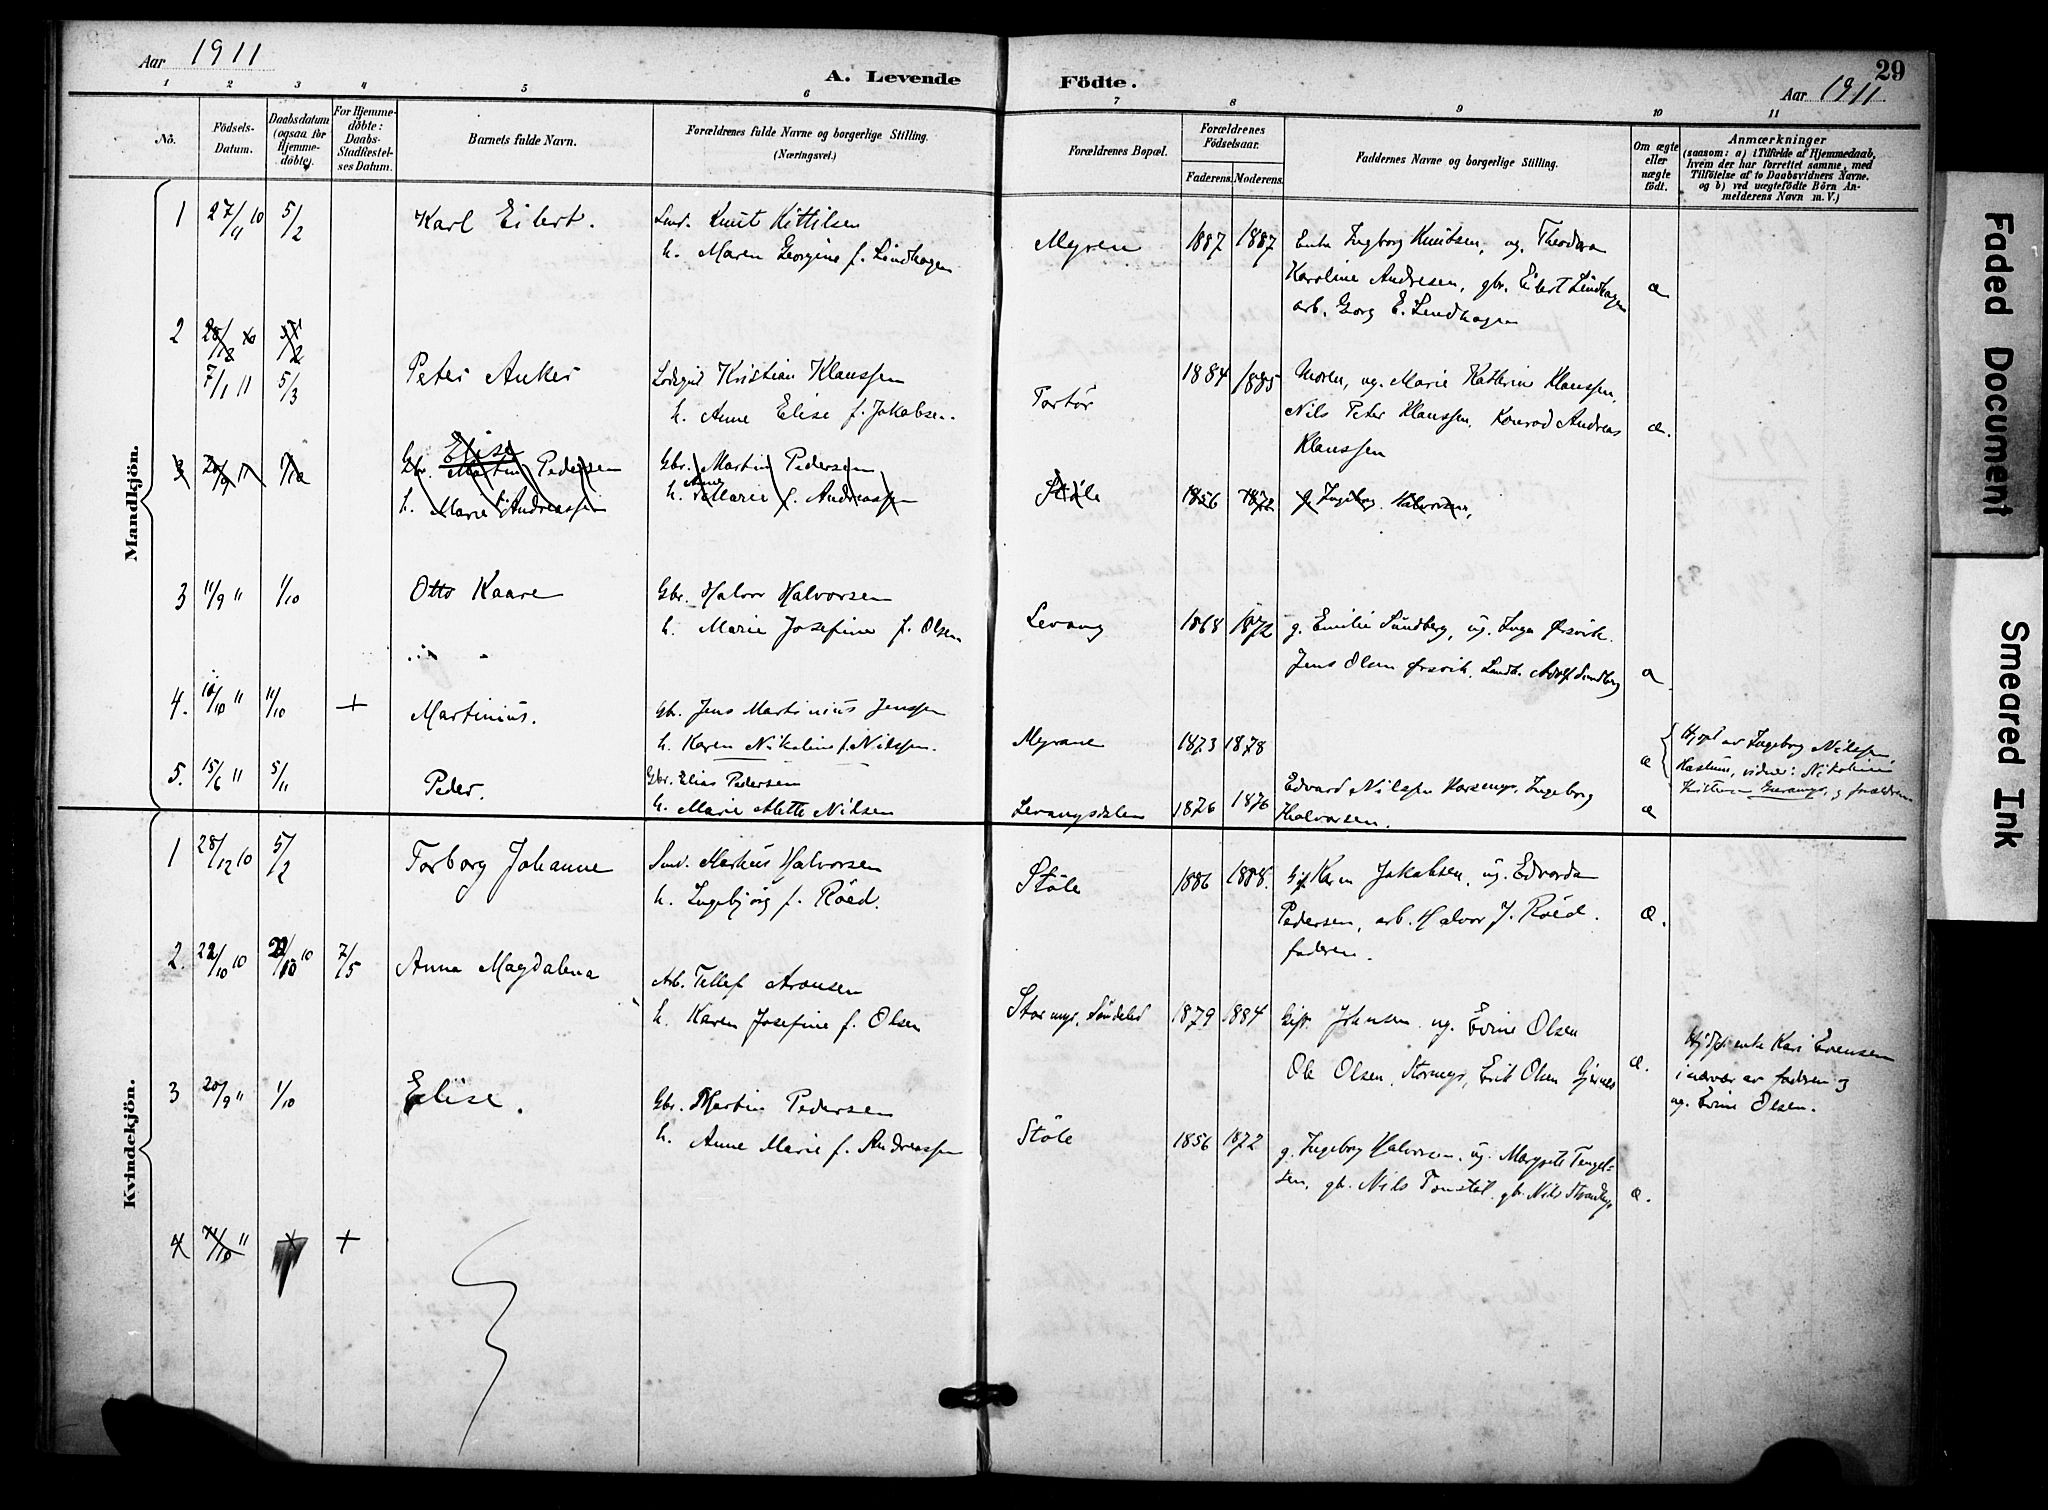 Aar 1911
A. Levende Födte.
29
Aar 1911
1 2 3 4 5 6 7 8 9 10 11
No.
Födsels-
Datum.
Daabsdatum
(ogsaa for
Hjemme-
döbte).
For Hjemme-
döbte:
Daabs-
Stadfæstel-
ses Datum.
Barnets fulde Navn.
Forældrenes fulde Navne og borgerlige Stilling.
(Næringsvei.)
Forældrenes Bopæl.
Forældrenes
Födselsaar.
Faderens. Moderens.
Faddernes Navne og borgerlige Stilling.
Om ægte
eller
uægte
födt.
Anmærkninger
(saasom: a) i Tilfælde af Hjemmedaab,
hvem der har forrettet samme, med
Tilföielse af to Daabsvidners Navne.
og b) ved uægtefödte Börn An-
melderens Navn m. V.)
Mandkjön.
1 27/11 10 5/2 Karl Eilert. Knut Kittilsen
h. Maren Georgine f. Lindhagen
Myren 1887 1887 Enke Ingborg Knutsen, ug. Theodora
Karoline Andresen, gbr. Eilert Lindhagen
arb. Georg E. Lindhagen
æ
2 28/12 10 5/2
7/1 11 5/3 Peter Anker Kristian Klaussen
h. Anne Elise f. Jakobsen.
Portör 1884 1885 Moren, ug. Marie Kathrine Klaussen,
Nils Peter Klaussen, Konrad Andreas
Klaussen
æ.
3 20/9 11 1/10 Elise
Gbr. Martin Pedersen
h. Marie Andreassen
Gbr. Martin Pedersen
h. Anne Marie f. Andreassen
Stöle 1856 1872 g. Ingeborg Halvorsen,
3 11/9 " 1/10 Otto Kaare Gbr. Halvor Halvorsen
h. Marie Josefine f. Olsen
Levang 1868 1872 g. Emilie Sundberg, ug. Inga
Jens Olsen Adolf Sundberg
æ.
4. 10/10 " 11/10 + Martinius. Gbr. Jens Martinius Jenssen
h. Karen Nikoline f. Nilssen.
Myrane 1873 1878 æ
av Ingeborg Nilssen,
vidner: Nikoline
g forældrene
5. 15/6 " 5/11 Peder. Gbr. Elias Pedersen
h. Marie Alette Nilsen
Levangsdalen 1876 1876 Edvard Nilssen Ingeborg
Halvorsen. æ
Kvindekjön.
1 28/12 10 5/2 Torborg Johanne Markus Halvorsen
h. Ingebjörg f. Röed.
Stöle 1886 1888. Karen Jakobsen, ug. Edvarda
Pedersen, arb. Halvor J. Röed.
faderen.
æ.
2. 22/10 10 22/10 10 7/5 Anna Magdalena Arb. Tellef Aronsen
h. Karen Josefine f. Olsen
Stormyr, Söndeled 1879 1884 Gift Johnsen, ug. Evine Olsen
Ole Olsen, Stormyr, Erik Olsen Gjernes
æ.
enke Kari Evensen
i nærvær av faderen og
ug. Evine Olsen.
3 20/9 " 1/10 Elise. Gbr. Martin Pedersen
h. Anne Marie f. Andreassen
Stöle 1856 1872 g. Ingeborg Halvorsen, ug. Margrete Tengel-
sen, gbr. Nils Tomstöl, gbr. Nils
æ.
4 11/10 " +
Faded Document
Smeared Ink